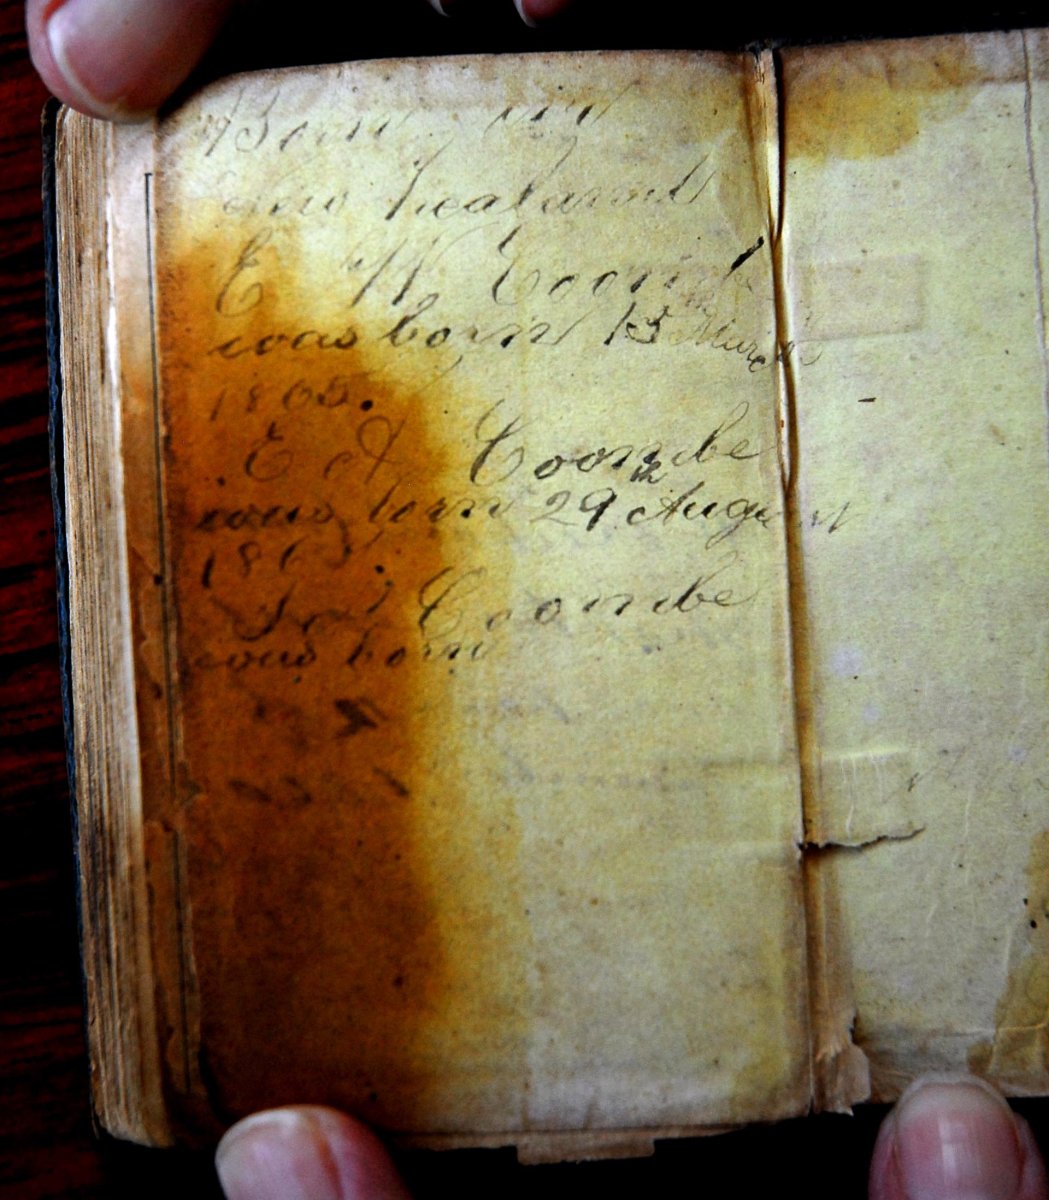 Born in
New Zealand
E W Coombe
was born 13 March
1865.
E A Coombe
was born 29th August
Coombe
was born